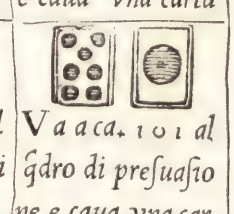 e caua vna carta
l V a a ca. 101 al
i q̃dro di preſuaſio
ne e caua vna car